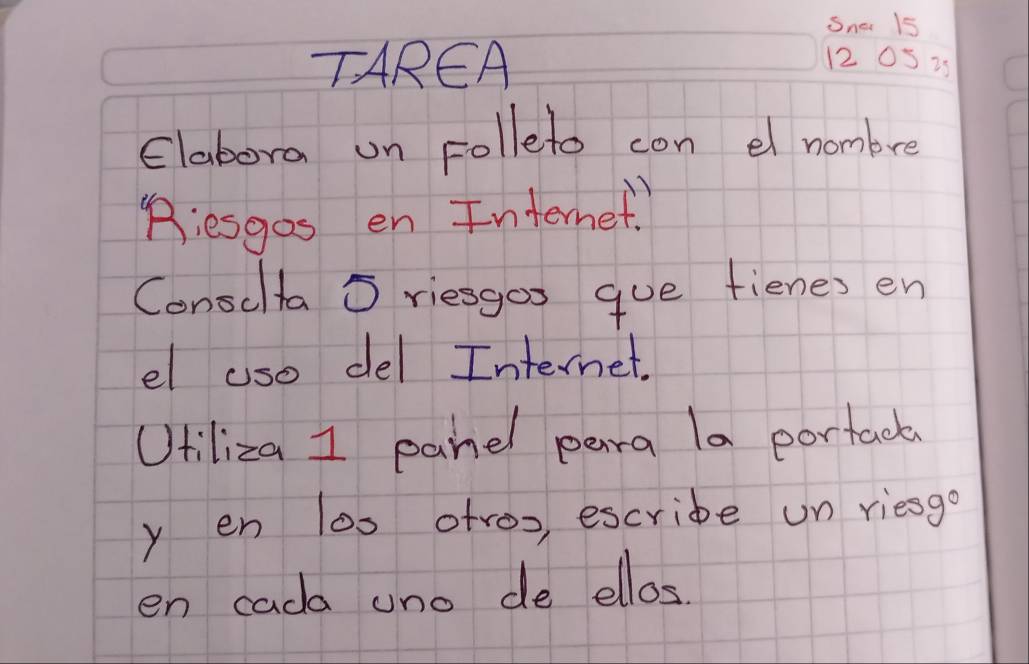 Sna 15
12 05 25
TAREA
Elabora un Folleto con el nombre
"Riesgos en Internet."
Consulta 5 riesgos que tienes en
el uso del Internet.
Utiliza 1 panel para la portada
y en los otros, escribe un riesgo
en cada uno de ellos.